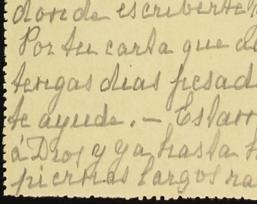 donde escriberte
Por tu carta que de
tengas dias pesad
te ayude. — Estam
á Dios y ya hasta
piernas largos ra